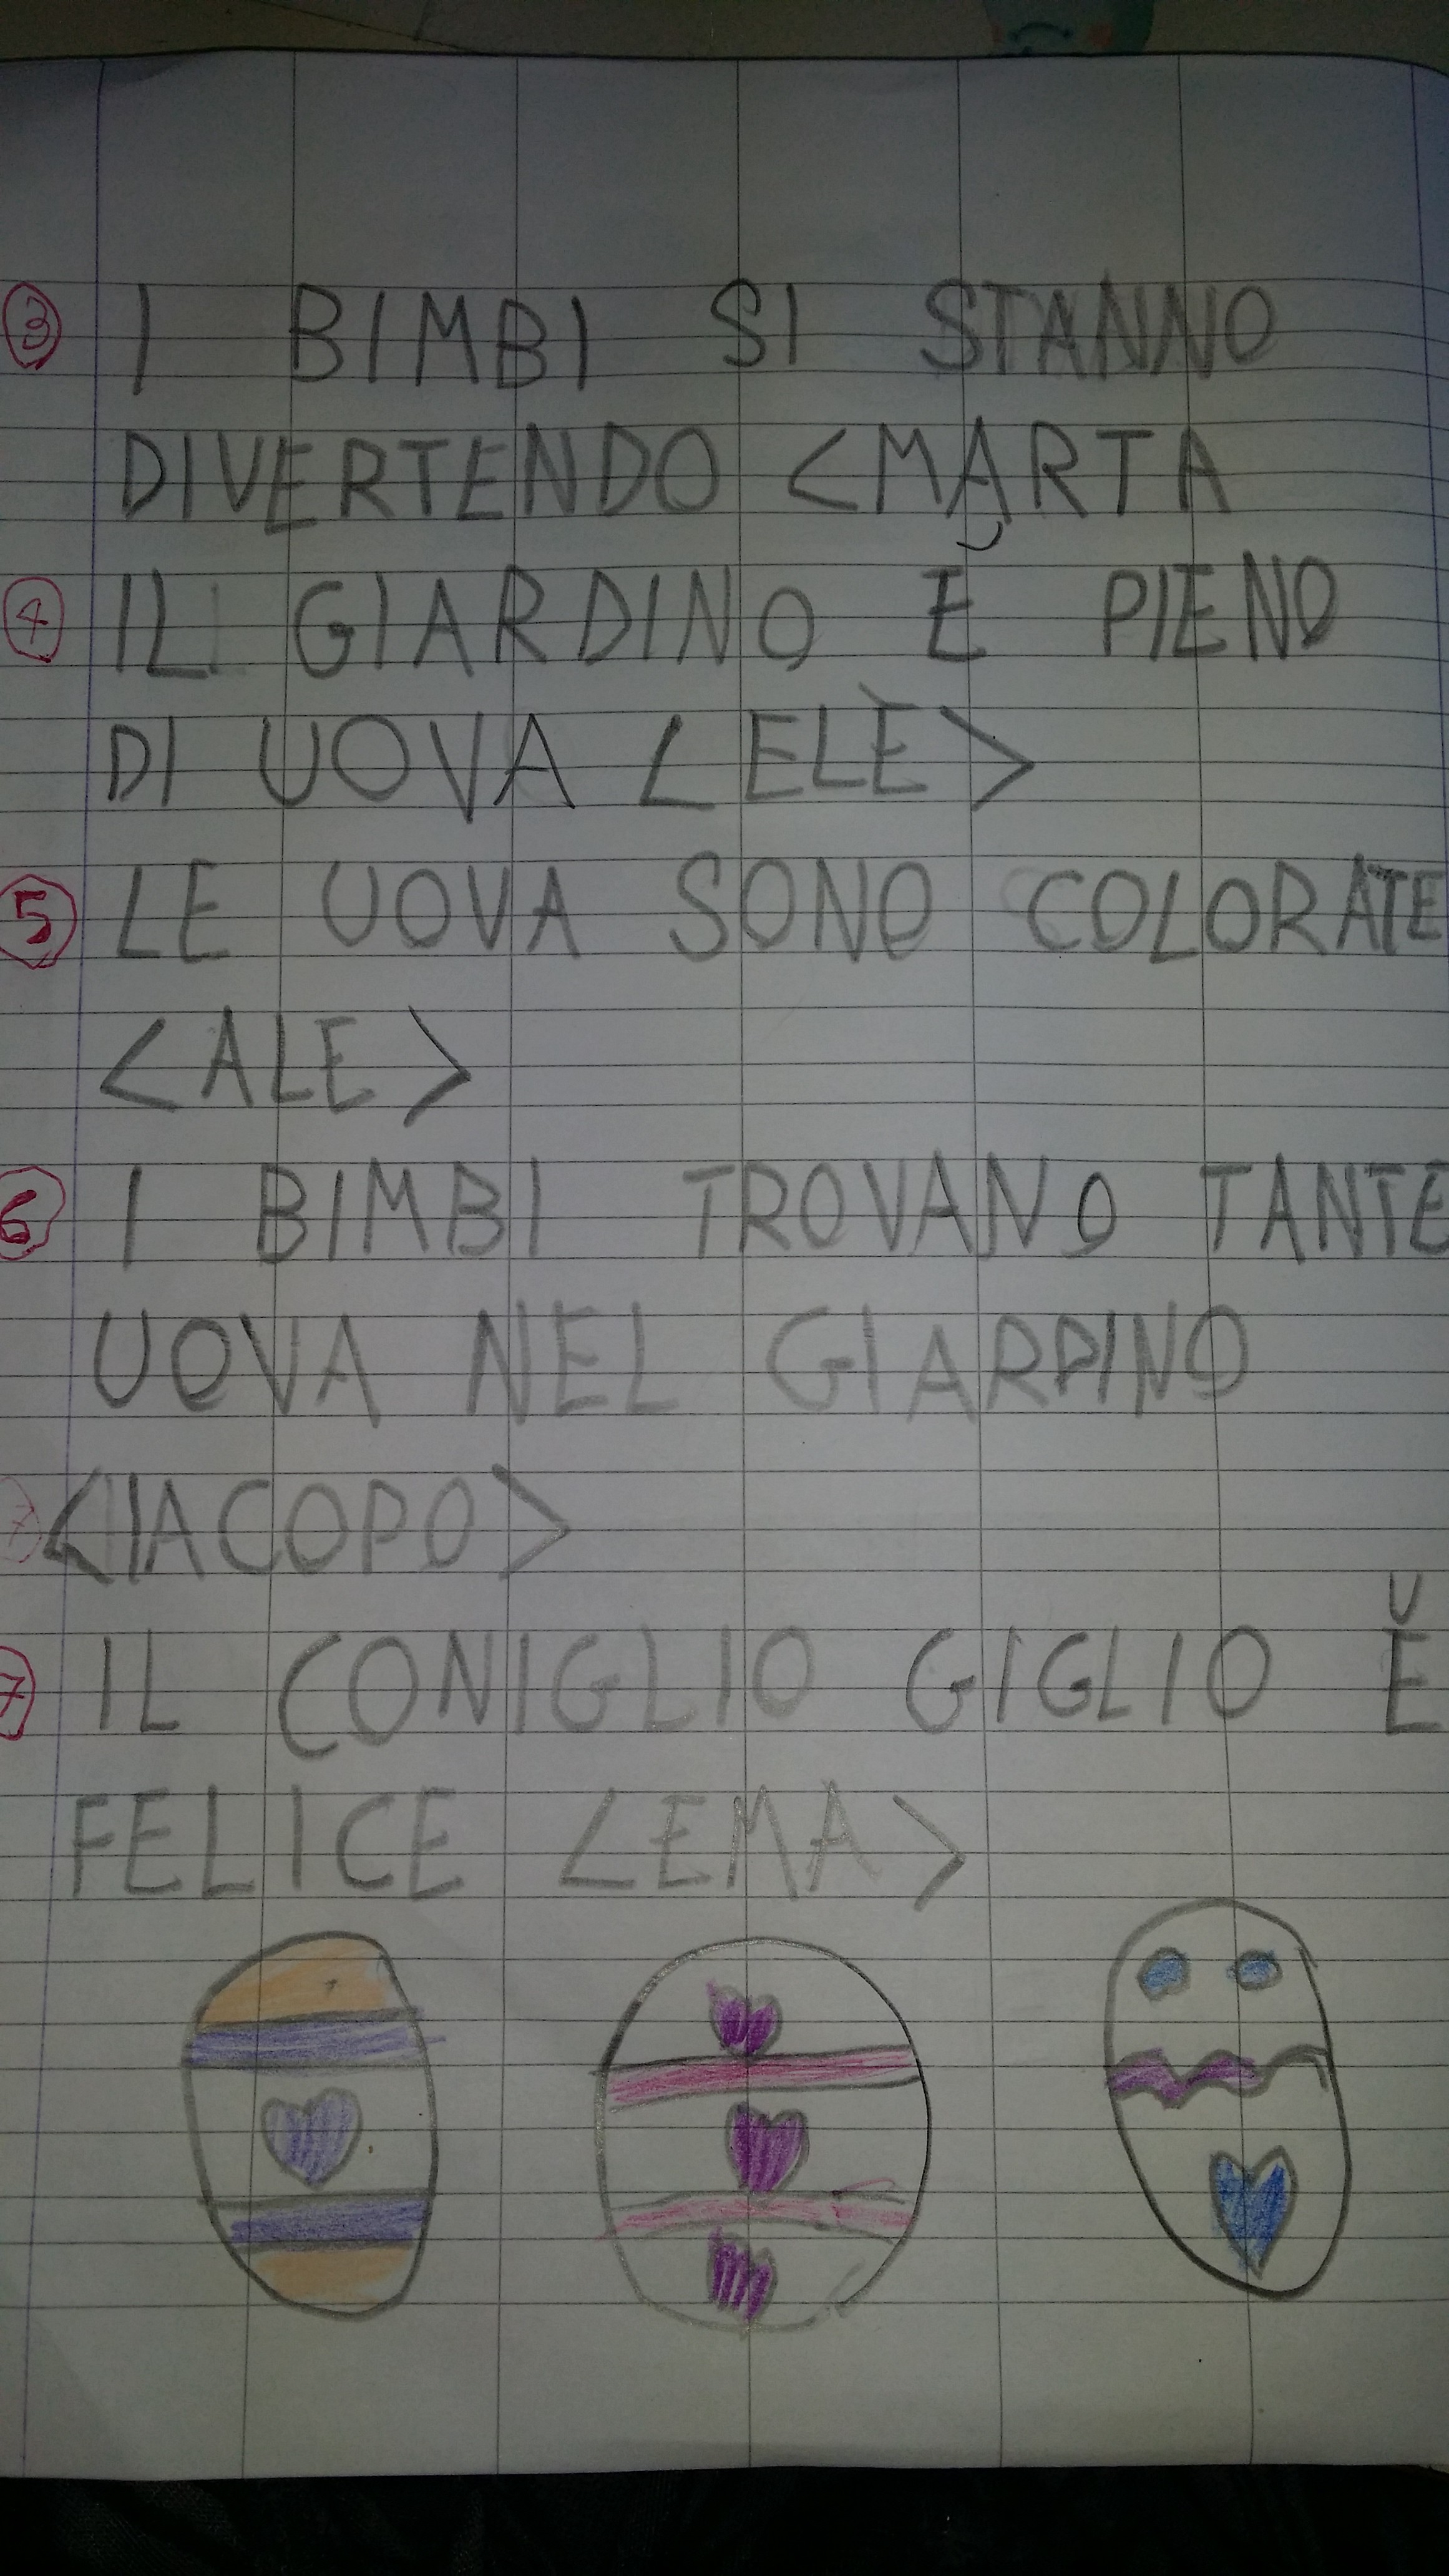 ③ I BIMBI SI STANNO
DIVERTENDO <MARTA
④ IL GIARDINO Ĕ PIENO
DI UOVA <ELE>
⑤ LE UOVA SONO COLORATE
<ALE>
⑥ I BIMBI TROVANO TANTE
UOVA NEL GIARDINO
<IACOPO>
⑦ IL CONIGLIO GIGLIO Ĕ
FELICE <EMA>